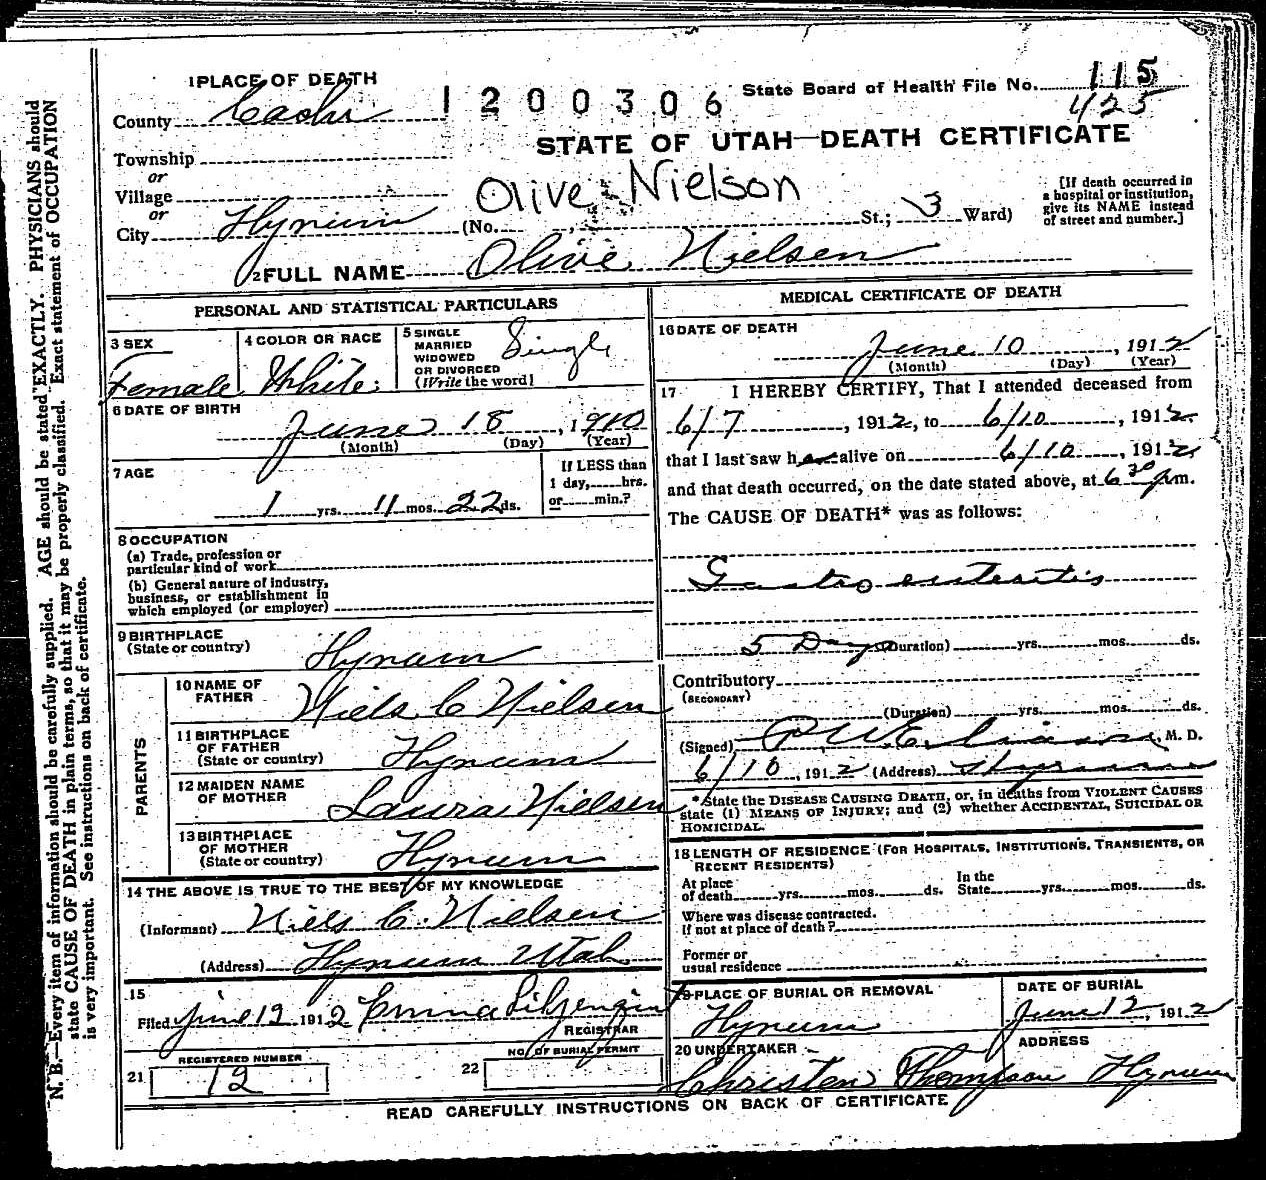 N. B.—Every item of information should be carefully supplied. AGE should be stated EXACTLY. PHYSICIANS should
state CAUSE OF DEATH in plain terms, so that it may be properly classified. Exact statement of OCCUPATION
is very important. See instructions on back of certificate.
1 PLACE OF DEATH
State Board of Health File No. 115
425
County Cache
1200306
STATE OF UTAH—DEATH CERTIFICATE
Township
or
Village
or
City Hyrum
Olive Nielson
(No. , St.; 3 Ward)
[If death occurred in
a hospital or institution,
give its NAME instead
of street and number.]
2 FULL NAME Olive Nielsen
PERSONAL AND STATISTICAL PARTICULARS
3 SEX
Female
4 COLOR OR RACE
White
5 SINGLE
MARRIED
WIDOWED
OR DIVORCED
(Write the word)
Single
6 DATE OF BIRTH
June 18, 1910
(Month) (Day) (Year)
7 AGE
1 yrs. 11 mos. 22 ds.
If LESS than
1 day, hrs.
or min.?
8 OCCUPATION
(a) Trade, profession or
particular kind of work
(b) General nature of industry,
business, or establishment in
which employed (or employer)
9 BIRTHPLACE
(State or country)
Hyrum
PARENTS
10 NAME OF
FATHER
Niels C Nielsen
11 BIRTHPLACE
OF FATHER
(State or country)
Hyrum
12 MAIDEN NAME
OF MOTHER
Laura Nielsen
13 BIRTHPLACE
OF MOTHER
(State or country)
Hyrum
14 THE ABOVE IS TRUE TO THE BEST OF MY KNOWLEDGE
(Informant) Niels C. Nielsen
(Address) Hyrum Utah
15
Filed June 12 1912 Emma
REGISTRAR
REGISTERED NUMBER
21 12
NO. OF BURIAL PERMIT
22
MEDICAL CERTIFICATE OF DEATH
16 DATE OF DEATH
June 10, 1912
(Month) (Day) (Year)
17 I HEREBY CERTIFY, That I attended deceased from
6/7, 1912, to 6/10, 1912
that I last saw her alive on 6/10, 1912
and that death occurred, on the date stated above, at 6 30 pm.
The CAUSE OF DEATH* was as follows:
Gastro enteritis
5 Days (Duration) yrs. mos. ds.
Contributory
(SECONDARY)
(Duration) yrs. mos. ds.
(Signed) M. D.
6/10, 1912 (Address) Hyrum
*State the DISEASE CAUSING DEATH, or, in deaths from VIOLENT CAUSES
state (1) MEANS OF INJURY; and (2) whether ACCIDENTAL, SUICIDAL OR
HOMICIDAL.
18 LENGTH OF RESIDENCE (FOR HOSPITALS, INSTITUTIONS, TRANSIENTS, OR
RECENT RESIDENTS)
At place
of death yrs. mos. ds.
In the
State yrs. mos. ds.
Where was disease contracted.
if not at place of death?
Former or
usual residence
19 PLACE OF BURIAL OR REMOVAL
Hyrum
DATE OF BURIAL
June 12, 1912
20 UNDERTAKER
Christen Thompson
ADDRESS
Hyrum
READ CAREFULLY INSTRUCTIONS ON BACK OF CERTIFICATE